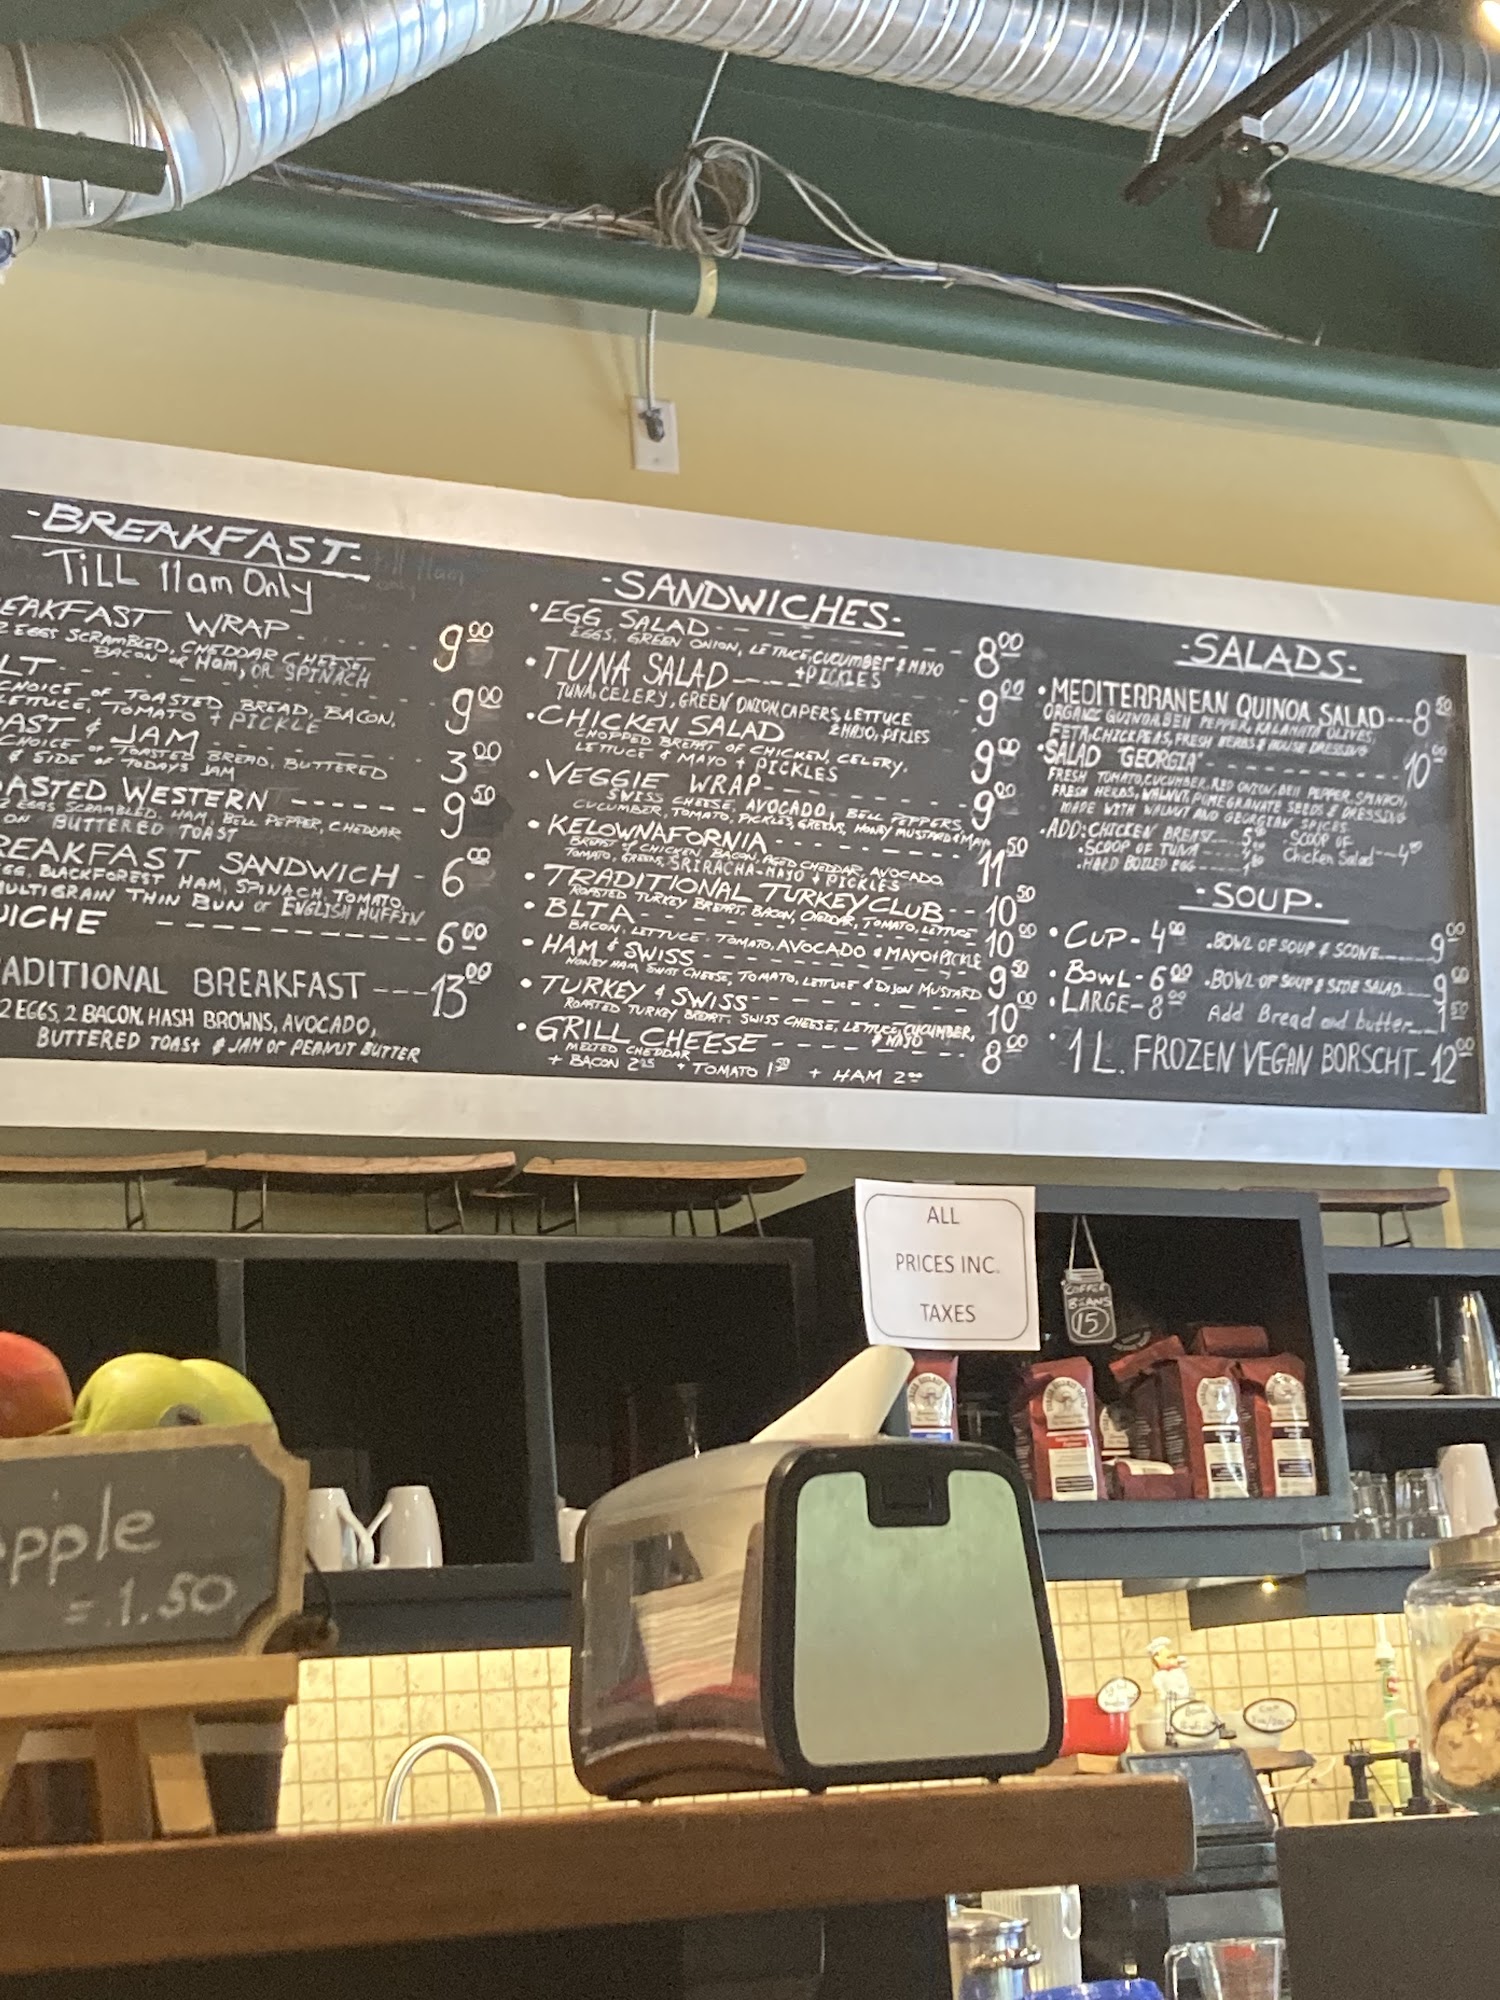 -BREAKFAST-
TiLL 11am Only
EAKFAST WRAP 9 00
2 EGGS SCRAMBLED, CHEDDAR CHEESE,
BACON or Ham, OR SPINACH
LT 9 00
CHOICE OF TOASTED BREAD, BACON,
LETTUCE, TOMATO + PICKLE
AST & JAM 3 00
CHOICE OF TOASTED BREAD, BUTTERED
& SIDE OF TODAYS JAM
ASTED WESTERN 9 50
2 EGGS SCRAMBLED, HAM, BELL PEPPER, CHEDDAR
ON BUTTERED TOAST
REAKFAST SANDWICH - 6 00
EGG, BLACKFOREST HAM, SPINACH, TOMATO,
MULTIGRAIN THIN BUN or ENGLISH MUFFIN
UICHE 6 00
ADITIONAL BREAKFAST ---13 00
2 EGGS, 2 BACON, HASH BROWNS, AVOCADO,
BUTTERED TOAST & JAM OR PEANUT BUTTER
-SANDWICHES-
•EGG SALAD 8 00
EGGS, GREEN ONION, LETTUCE, CUCUMBER & MAYO
+PICKLES
•TUNA SALAD 9 00
TUNA, CELERY, GREEN ONION, CAPERS, LETTUCE
& MAYO, PICKLES
•CHICKEN SALAD 9 00
CHOPPED BREAST OF CHICKEN, CELERY,
LETTUCE & MAYO + PICKLES
•VEGGIE WRAP 9 00
SWISS CHEESE, AVOCADO, BELL PEPPERS,
CUCUMBER, TOMATO, PICKLES, GREENS, HONEY MUSTARD & MAYO
•KELOWNAFORNIA 11 50
BREAST OF CHICKEN, BACON, AGED CHEDDAR, AVOCADO,
TOMATO, GREENS, SRIRACHA-MAYO + PICKLES
•TRADITIONAL TURKEY CLUB-- 10 50
ROASTED TURKEY BREAST, BACON, CHEDDAR, TOMATO, LETTUCE
•BLTA 10 00
BACON, LETTUCE, TOMATO, AVOCADO & MAYO+PICKLE
•HAM & SWISS 9 50
HONEY HAM, SWISS CHEESE, TOMATO, LETTUCE & DIJON MUSTARD
•TURKEY & SWISS 10 00
ROASTED TURKEY BREAST, SWISS CHEESE, LETTUCE, CUCUMBER,
& MAYO
•GRILL CHEESE 8 00
MELTED CHEDDAR
+ BACON 2 25 + TOMATO 1 50 + HAM 2 00
-SALADS-
•MEDITERRANEAN QUINOA SALAD---8 50
ORGANIC QUINOA, BELL PEPPER, KALAMATA OLIVES,
FETA, CHICKPEAS, FRESH HERBS & HOUSE DRESSING
•SALAD "GEORGIA" 10 00
FRESH TOMATO, CUCUMBER, RED ONION, BELL PEPPER, SPINACH,
FRESH HERBS, WALNUT, POMEGRANATE SEEDS & DRESSING
MADE WITH WALNUT AND GEORGIAN SPICES
•ADD: CHICKEN BREAST
•SCOOP OF TUNA
•HARD BOILED EGG
SCOOP OF
Chicken Salad
-SOUP-
•CUP- 4 00 .BOWL OF SOUP & SCONE 9 00
•BOWL- 6 00 .BOWL OF SOUP & SIDE SALAD 9 00
•LARGE- 8 00 Add Bread and butter 1 50
•1 L. FROZEN VEGAN BORSCHT-12 00
ALL
PRICES INC.
TAXES
COFFEE
BEANS
15
pple
=1.50